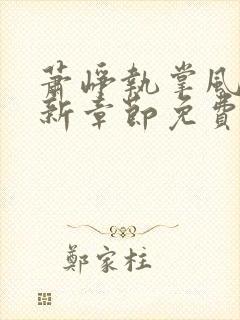 蕭崢執掌風
新章節免費
鄭家柱